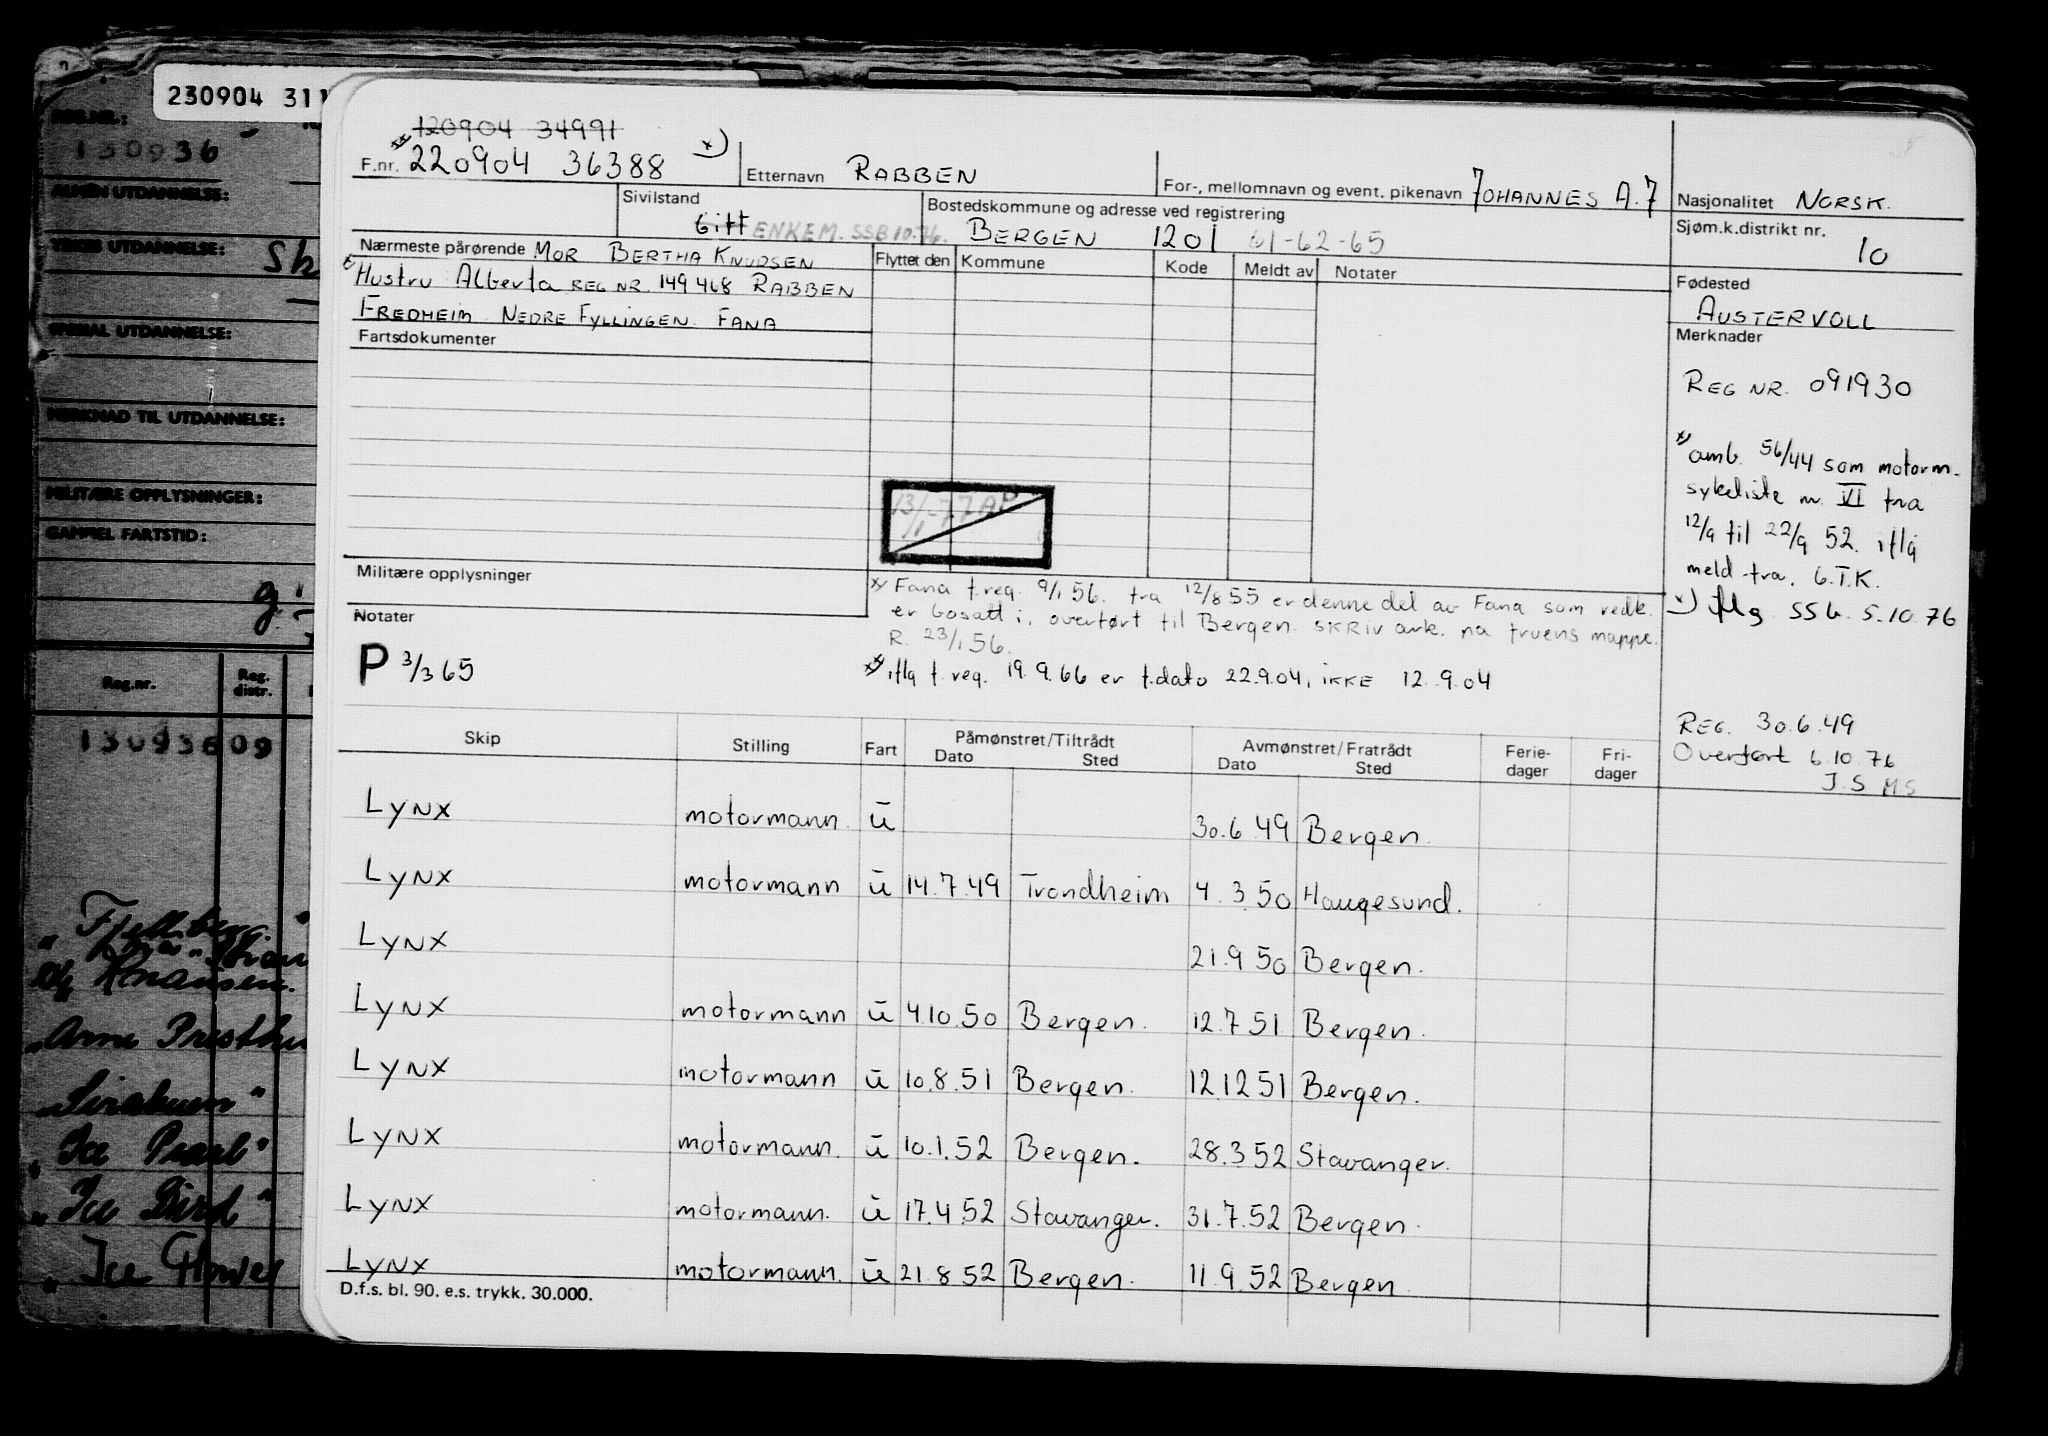 230904 311
REG.NR.:
130936
ALMEN UTDANNELSE:
YRKES UTDANNELSE: Sk
SPESIAL UTDANNELSE:
MERKNAD TIL UTDANNELSE:
MILITÆRE OPPLYSNINGER:
GAMMEL FARTSTID:
Reg.nr. Reg. distr.
130936 09
"Fjellberg."
"Arne Presthu
"Sirakuen"
"Ice Pearl"
"Ice Bird"
"Ice Flower
120904 34991
F.nr. 220904 36388 x)
Etternavn RABBEN
For-, mellomnavn og event. pikenavn JOHANNES A. J
Nasjonalitet NORSK.
Sivilstand
Gift ENKEM. SSB 10.76.
Bostedskommune og adresse ved registrering
BERGEN 1201 61-62-65
Sjøm.k.distrikt nr.
10
Nærmeste pårørende MOR BERTHA KNUDSEN
Hustru Alberta REG NR. 149468 RABBEN
FREDHEIM NEDRE FYLLINGEN. FANA
Flyttet den Kommune Kode Meldt av Notater
Fødested
AUSTERVOLL
Fartsdokumenter
Merknader
REG NR. 091930
x) omb. 56/44 som motorm.
sykeliste m. VI fra
12/9 til 22/9 52. iflg
meld fra. G.T.K.
x) iflg. SSB. 5.10.76
REG. 30.6.49
Overført 6.10.76
J.S MS
13/1-77 AP
Militære opplysninger
Notater
P 3/3 65
x) Fana f.reg. 9/1 56. fra 12/8 55 er denne del av Fana som vedk.
er bosatt i, overført til Bergen. SKRIV ark. på fruens mappe.
R. 23/1 56.
xx) iflg f. reg. 19.9.66 er f.dato 22.9.04, IKKE 12.9.04
Skip Stilling Fart Påmønstret/Tiltrådt Avmønstret/Fratrådt Ferie- Fri-
Dato Sted Dato Sted dager dager
LYNX motormann. u 30.6.49 Bergen.
LYNX motormann u 14.7.49 Trondheim 4.3.50 Haugesund.
LYNX 21.9 50 Bergen.
LYNX motormann u 4.10.50 Bergen. 12.7 51 Bergen.
LYNX motormann u 10.8.51 Bergen. 12.12 51 Bergen.
LYNX motormann. u 10.1.52 Bergen. 28.3 52 Stavanger.
LYNX motormann. u 17.4 52 Stavanger. 31.7.52 Bergen.
LYNX motormann. u 21.8 52 Bergen. 11.9.52 Bergen
D.f.s. bl. 90. e.s. trykk. 30.000.